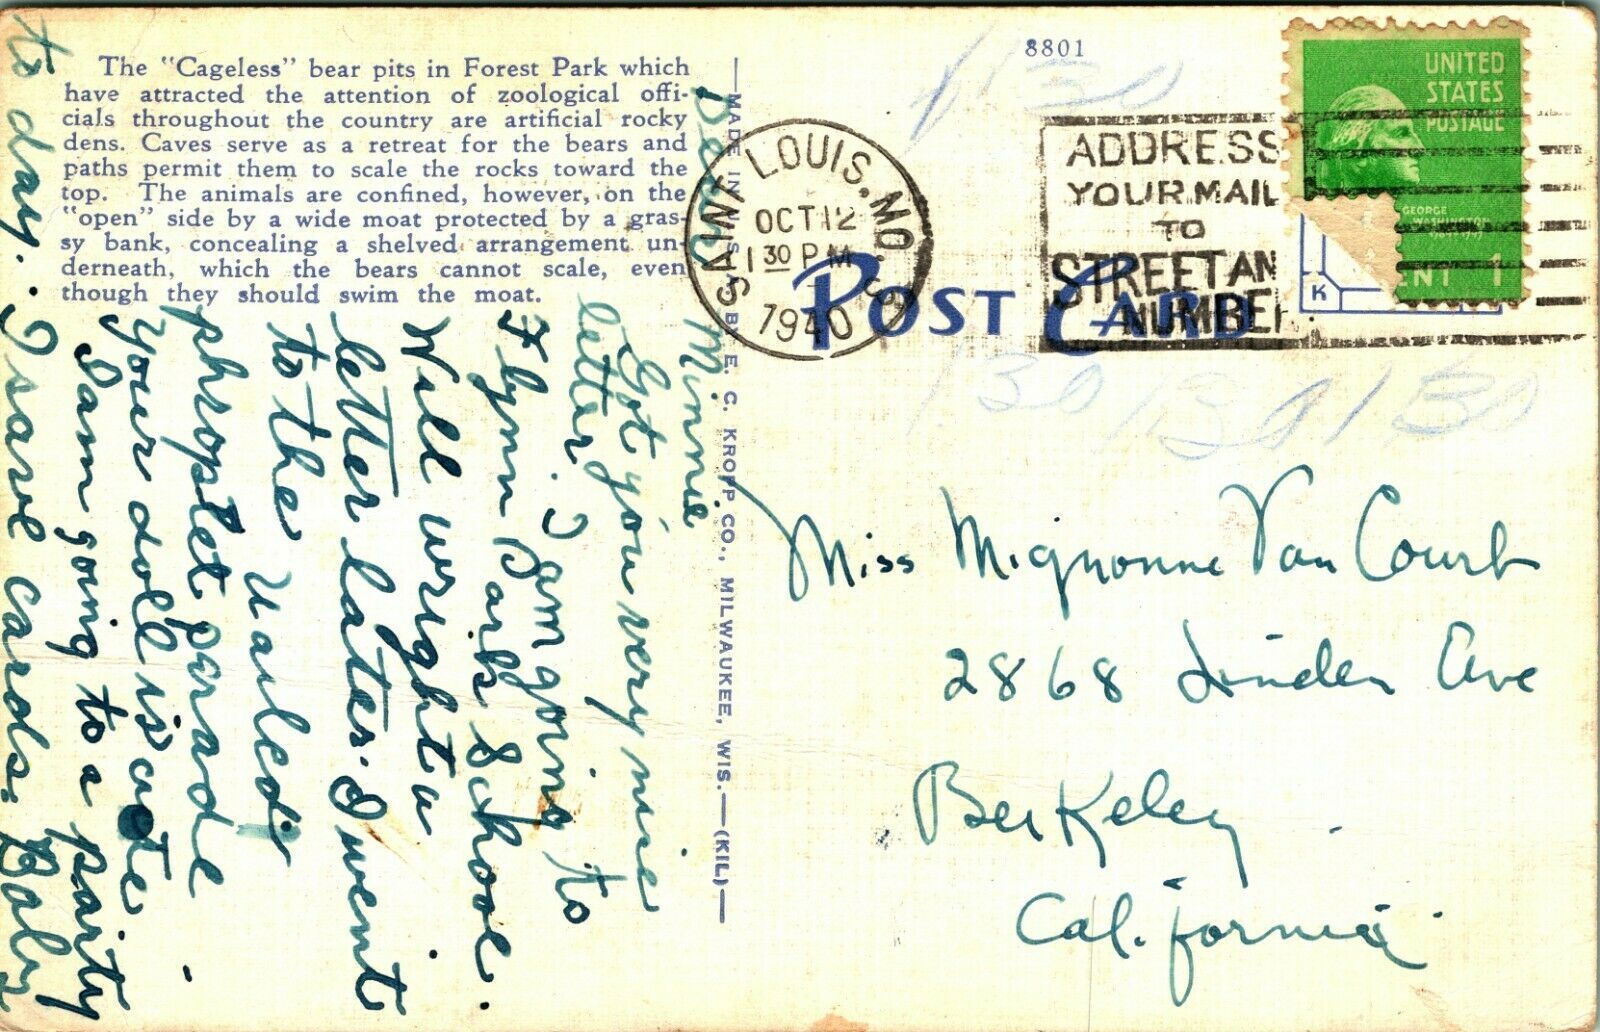 The "Cageless" bear pits in Forest Park which
have attracted the attention of zoological offi-
cials throughout the country are artificial rocky
dens. Caves serve as a retreat for the bears and
paths permit them to scale the rocks toward the
top. The animals are confined, however, on the
"open" side by a wide moat protected by a gras-
sy bank, concealing a shelved arrangement un-
derneath, which the bears cannot scale, even
though they should swim the moat.
Dear Minnie
Got you very nice
letter. I am going to
Flynn Park School.
Will wright a
letter later. I went
to the Vailed
phroplet parade
Your doll is cute
I am going to a party
to day. I save cards. Baby
—MADE IN U.S.A. BY E. C. KROPP CO., MILWAUKEE, WIS.—(KIL)—
8801
1 30
SAINT LOUIS, MO.
OCT 12
1 30 PM
1940
ADDRESS
YOUR MAIL
TO
STREET AN
NUMBE
UNITED
STATES
POSTAGE
GEORGE
WASHINGTON
ENT 1
K
POST CARD
130 130 130
Miss Mignonne Van Court
2868 Linden Ave
Berkeley
California